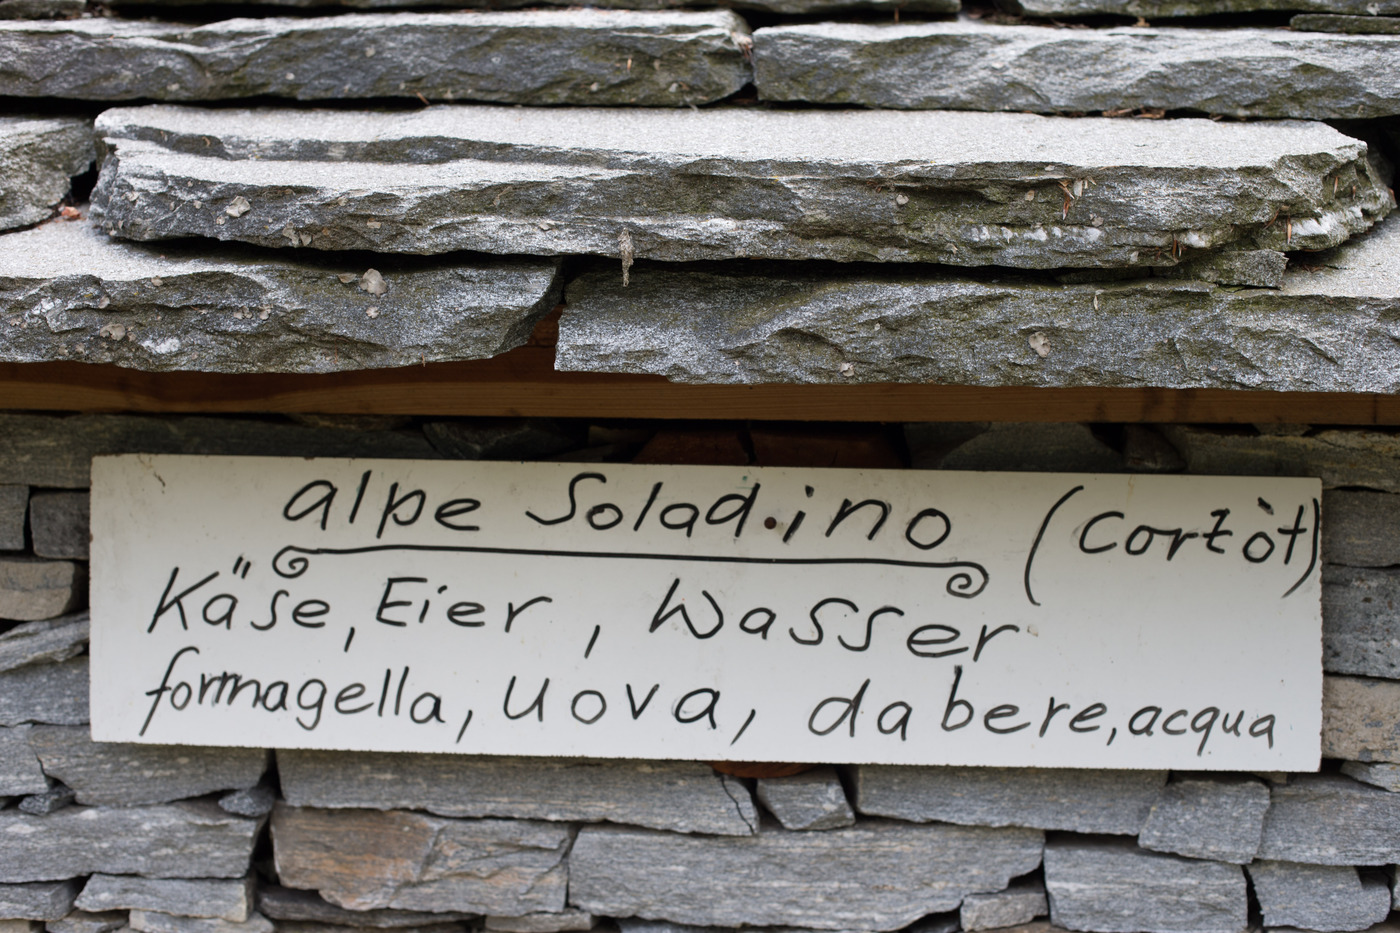 alpe Soladino (Cortòt)
Käse, Eier, Wasser
formagella, uova, da bere, acqua